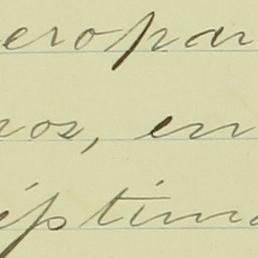 eropar
ros, en
iptima